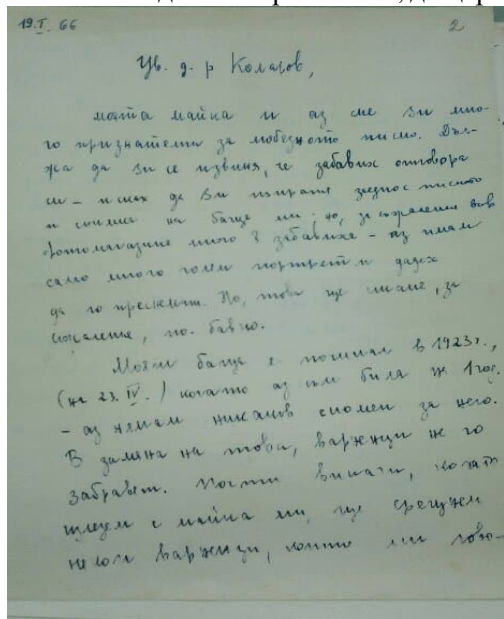 19.I. 66
2
Ув. д-р Колагов,
моята майка и аз сме Ви мно-
го признателни за любезното писмо. Дъл-
жа да Ви се извиня, че забавих отговора
си – исках да Ви изпратя заедно с писмото
и снимка на баща ми; но, за съжаление във
фотомагазина много я забавиха – аз имам
само много голям портрет и дадох
да го преснемат. Но, това ще стане, за
съжаление, по-бавно.
Моят баща е починал в 1923г.,
(на 23. IV.) когато аз съм била на 1 год.
– аз нямам никакъв спомен за него.
В замяна на това, варненци не го
забравят. Почти винаги, когато
идем с майка ми, ще срещнем
варненци, които ни гово-